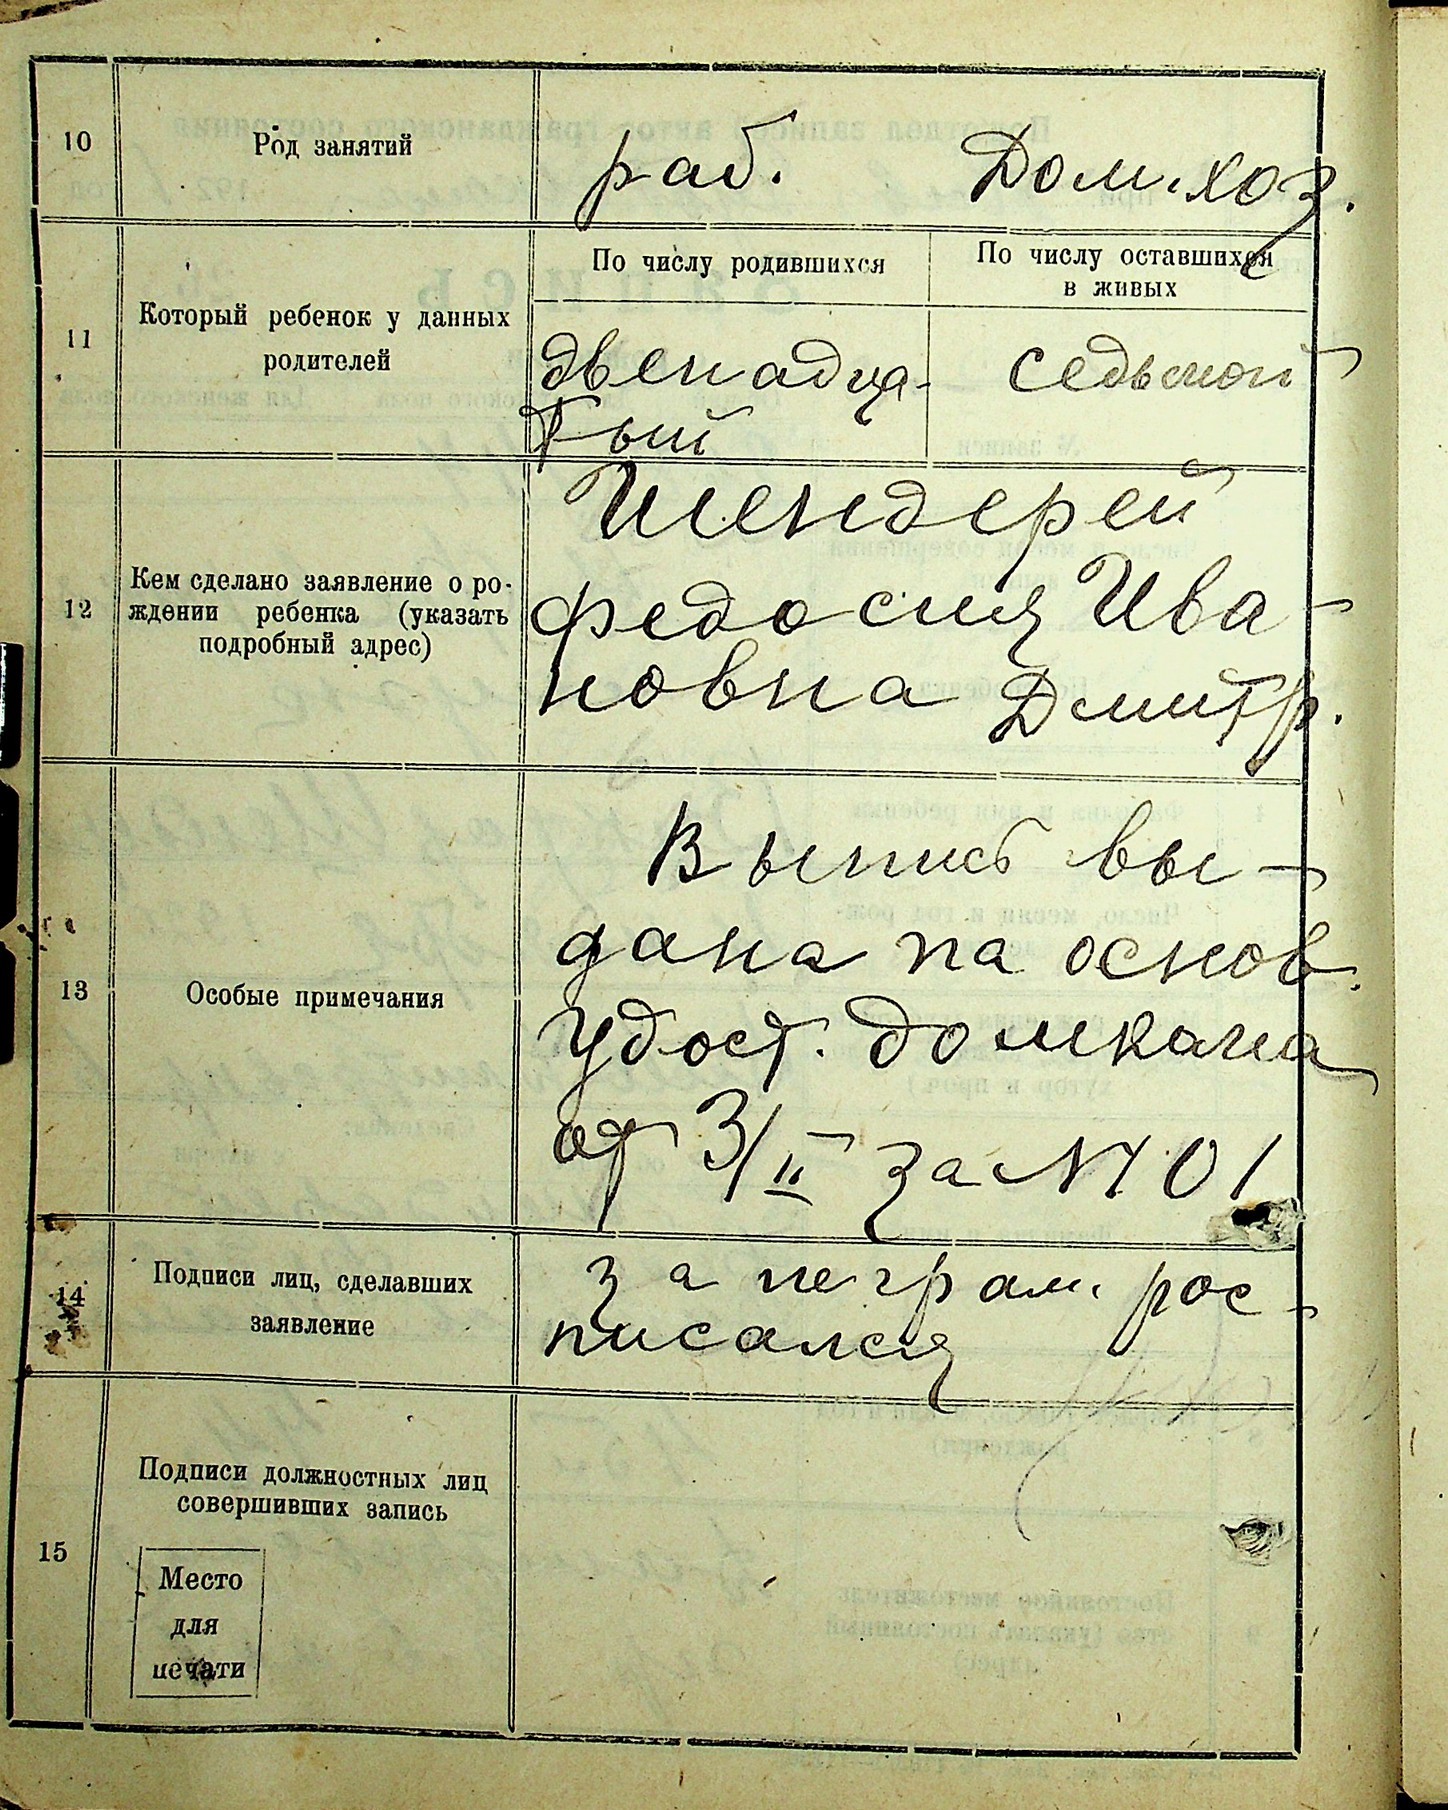 10 Род занятий раб. Дом.хоз.
По числу родившихся По числу оставшихся
в живых
11 Который ребенок у данных
родителей
двенадца- седьмой
тый
12 Кем сделано заявление о ро-
ждении ребенка (указать
подробный адрес)
Шендерей
Федосия Ива-
новна Дмитр.
13 Особые примечания
Выпись вы-
дана на основ.
удост. домкома
от 3/II за № 101
14 Подписи лиц, сделавших
заявление
за неграм. рос-
писался
15 Подписи должностных лиц
совершивших запись
Место
для
печати